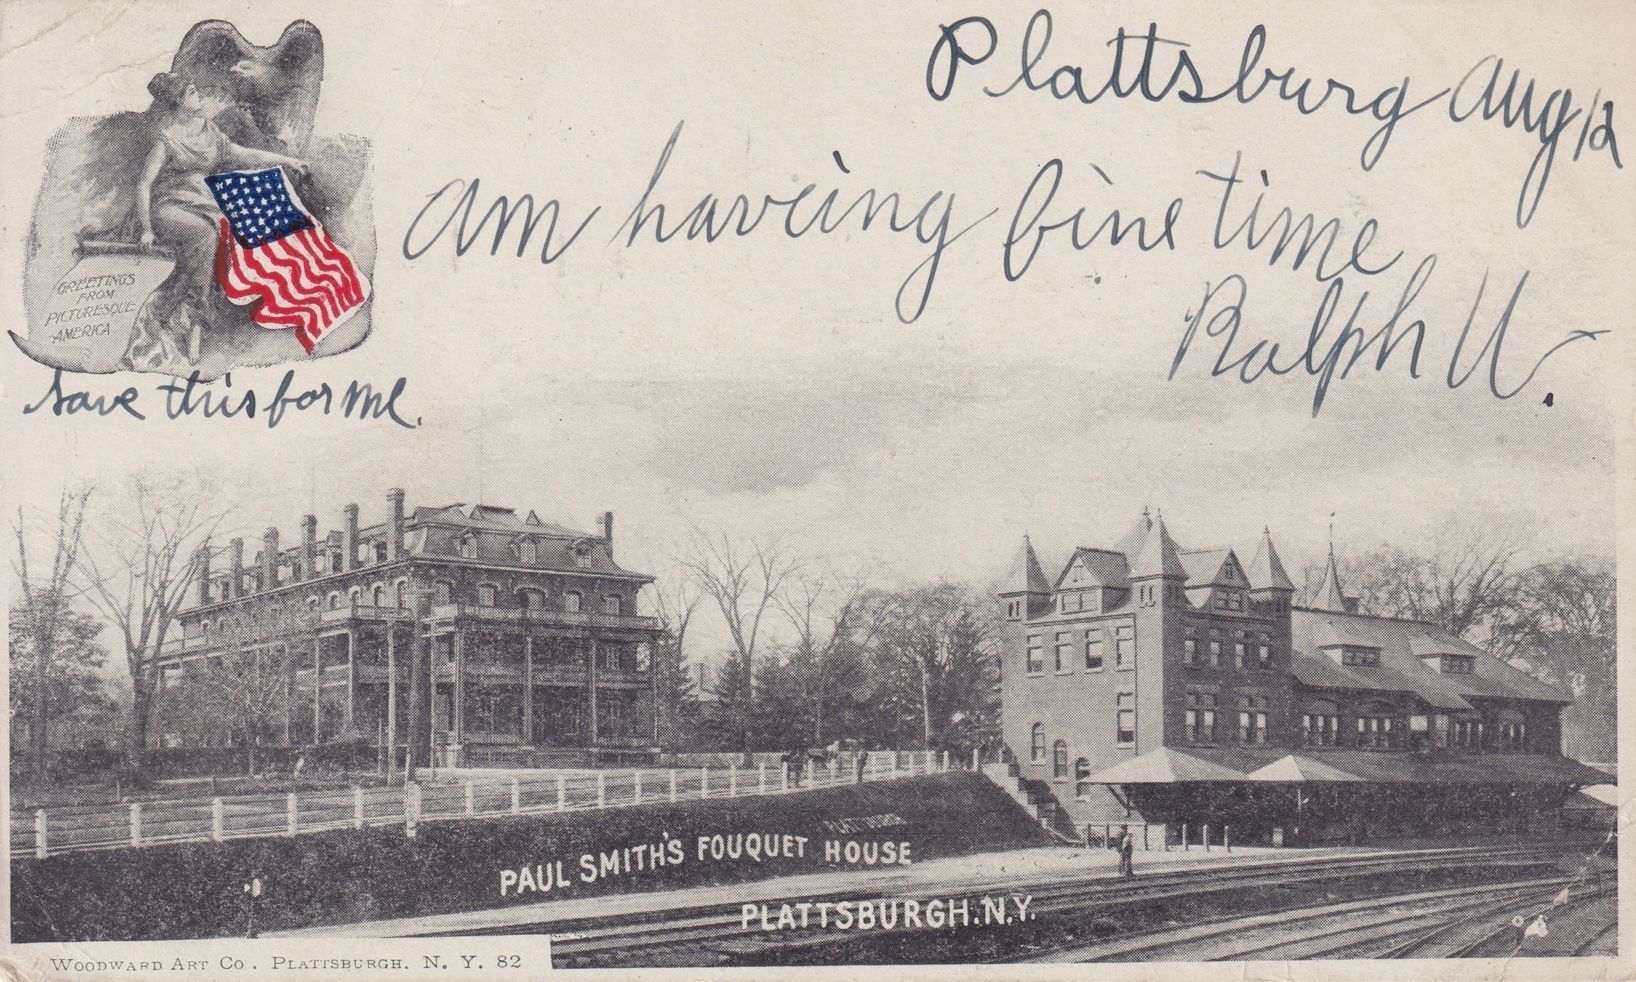 Plattsburg Aug 12
am haveing fine time
Ralph W.
GREETINGS
FROM
PICTURESQUE
AMERICA
save this for me.
PLATTSBURGH
PAUL SMITH'S FOUQUET HOUSE
PLATTSBURGH. N.Y.
WOODWARD ART CO. PLATTSBURGH. N. Y. 82